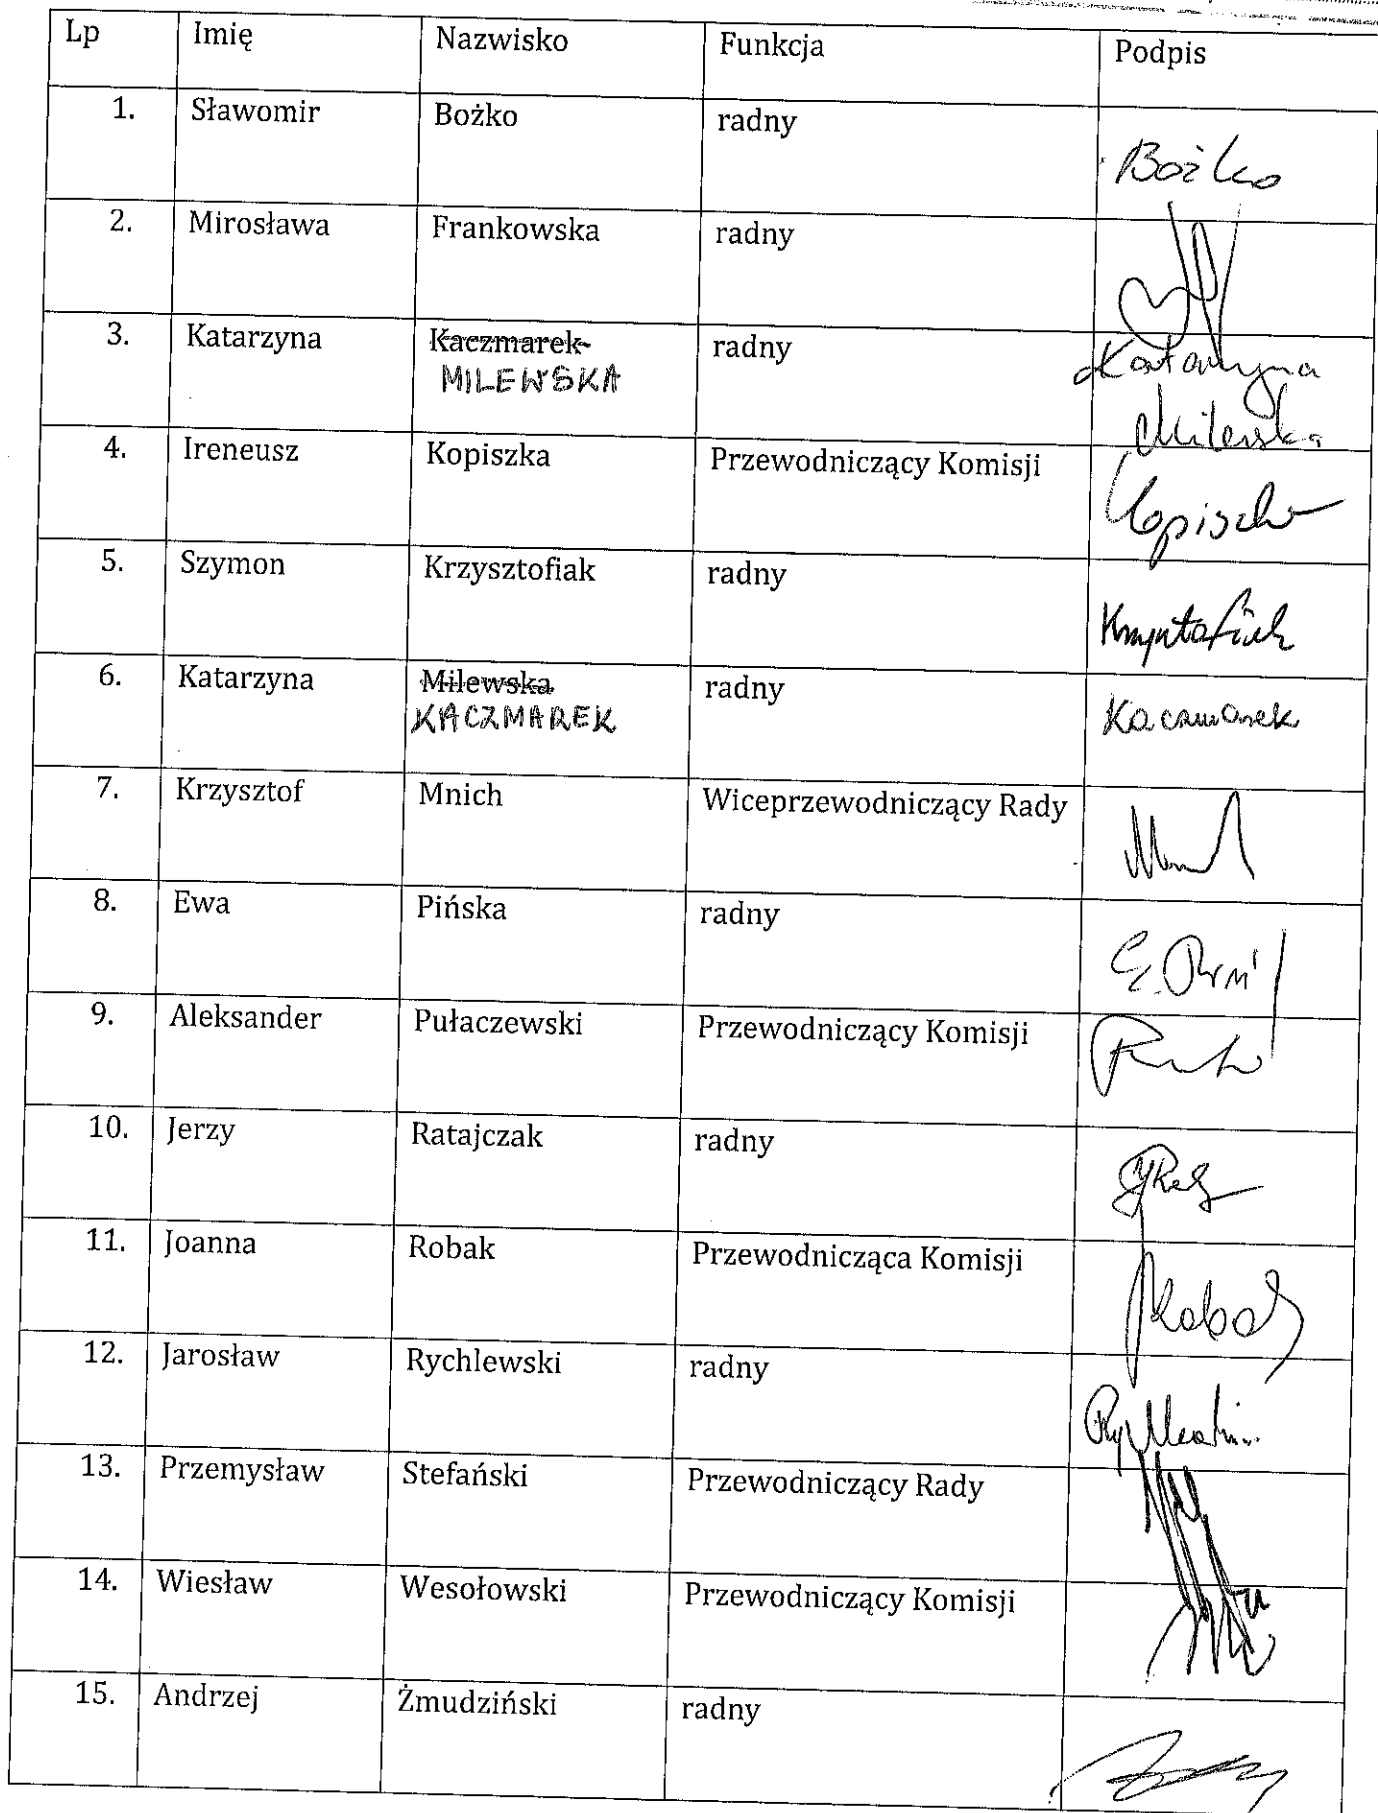 Lp Imię Nazwisko Funkcja Podpis
1. Sławomir Bożko radny Bożko
2. Mirosława Frankowska radny
3. Katarzyna Kaczmarek radny Katarzyna
MILEWSKA Milewska
4. Ireneusz Kopiszka Przewodniczący Komisji Kopiszka
5. Szymon Krzysztofiak radny Krzysztofiak
6. Katarzyna Milewska radny Kaczmarek
KACZMAREK
7. Krzysztof Mnich Wiceprzewodniczący Rady
8. Ewa Pińska radny
9. Aleksander Pułaczewski Przewodniczący Komisji
10. Jerzy Ratajczak radny
11. Joanna Robak Przewodnicząca Komisji Robak
12. Jarosław Rychlewski radny
13. Przemysław Stefański Przewodniczący Rady
14. Wiesław Wesołowski Przewodniczący Komisji
15. Andrzej Żmudziński radny